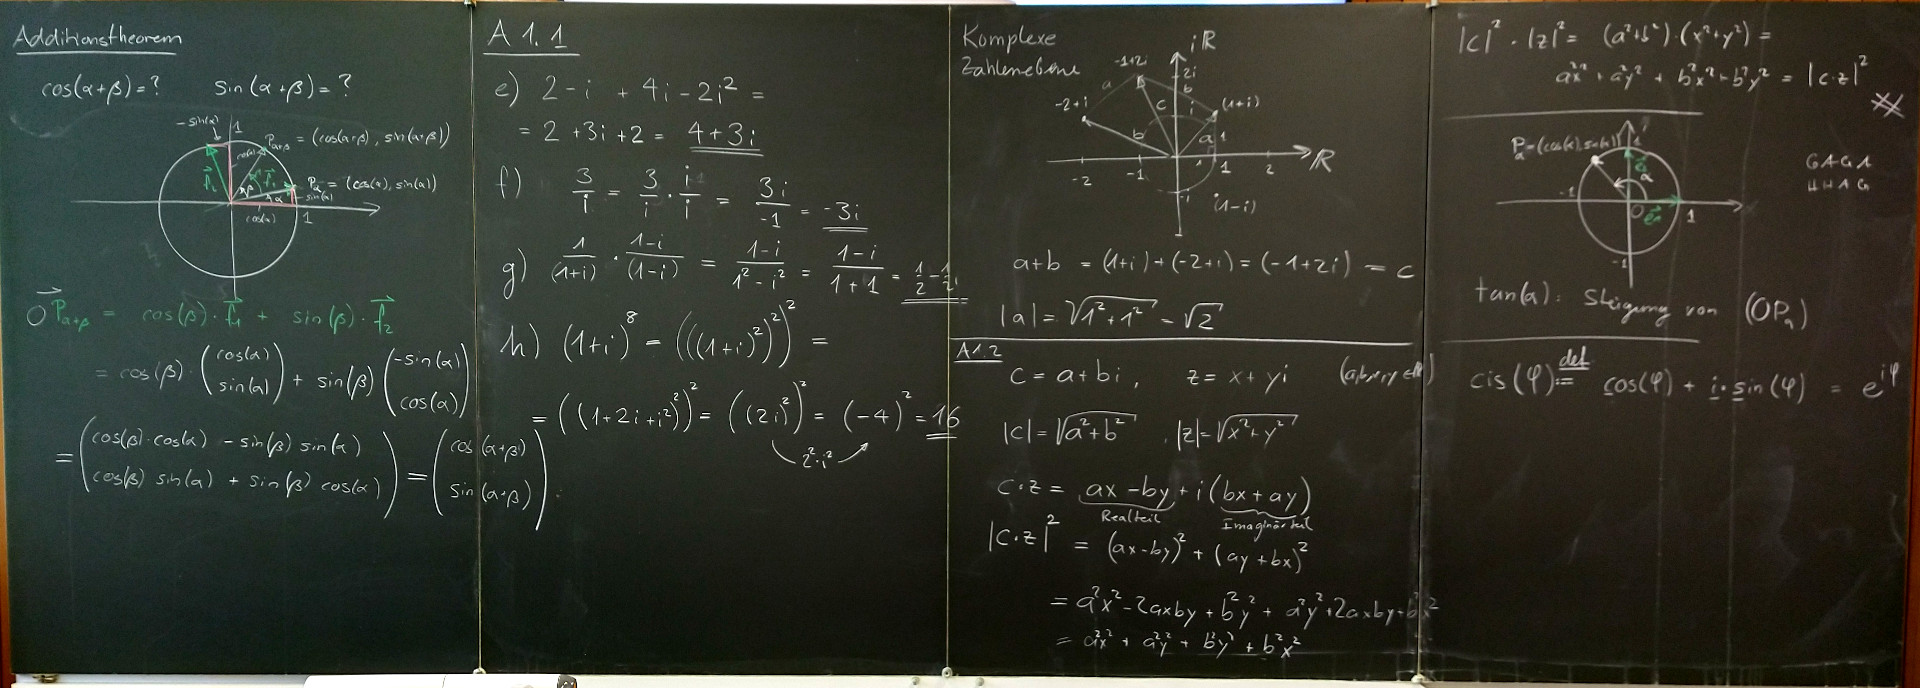 Additionstheorem
cos(α+β)=? sin(α+β)=?
-sin(α)
1
P_{α+β} = (cos(α+β), sin(α+β))
cos(α)
f⃗₂ β f⃗₁ P_α = (cos(α), sin(α))
α sin(α)
cos(α) 1
OP⃗_{α+β} = cos(β)·f⃗₁ + sin(β)·f⃗₂
= cos(β)·(cos(α) sin(α)) + sin(β)(-sin(α) cos(α))
= (cos(β)·cos(α) - sin(β) sin(α) cos(β) sin(α) + sin(β) cos(α)) = (cos(α+β) sin(α+β)).
A 1.1
e) 2-i + 4i-2i² =
= 2+3i+2 = 4+3i
f) 3/i = 3/i · i/i = 3i/-1 = -3i
g) 1/(1+i) · 1-i/(1-i) = 1-i/1²-i² = 1-i/1+1 = 1/2-1/2i
h) (1+i)⁸ = (((1+i)²)²)² =
= ((1+2i+i²)²)² = ((2i)²)² = (-4)² = 16
2²·i²
Komplexe
Zahlenebene
iℝ
-1+2i 2i
a b
-2+i c i (1+i)
b a 1
-2 -1 1 2 ℝ
-i (1-i)
a+b = (1+i)+(-2+i) = (-1+2i) = c
|a| = √1²+1² = √2
A1.2
c = a+bi, z = x+yi (a,b,x,y ∈ℝ)
|c| = √a²+b², |z| = √x²+y²
c·z = ax-by + i(bx+ay)
Realteil Imaginärteil
|c·z|² = (ax-by)² + (ay+bx)²
= a²x²-2axby+b²y² + a²y²+2axby+b²x²
= a²x² + a²y² + b²y² + b²x²
|c|²·|z|² = (a²+b²)·(x²+y²) =
a²x² + a²y² + b²x² + b²y² = |c·z|²
P_α=(cos(α), sin(α)) 1
e⃗₂ α
-1 0 e⃗₁ 1
-1
GAGA
HHAG
tan(α): Steigung von (OP_α)
cis(φ) :=^{def} cos(φ) + i·sin(φ) = e^{iφ}